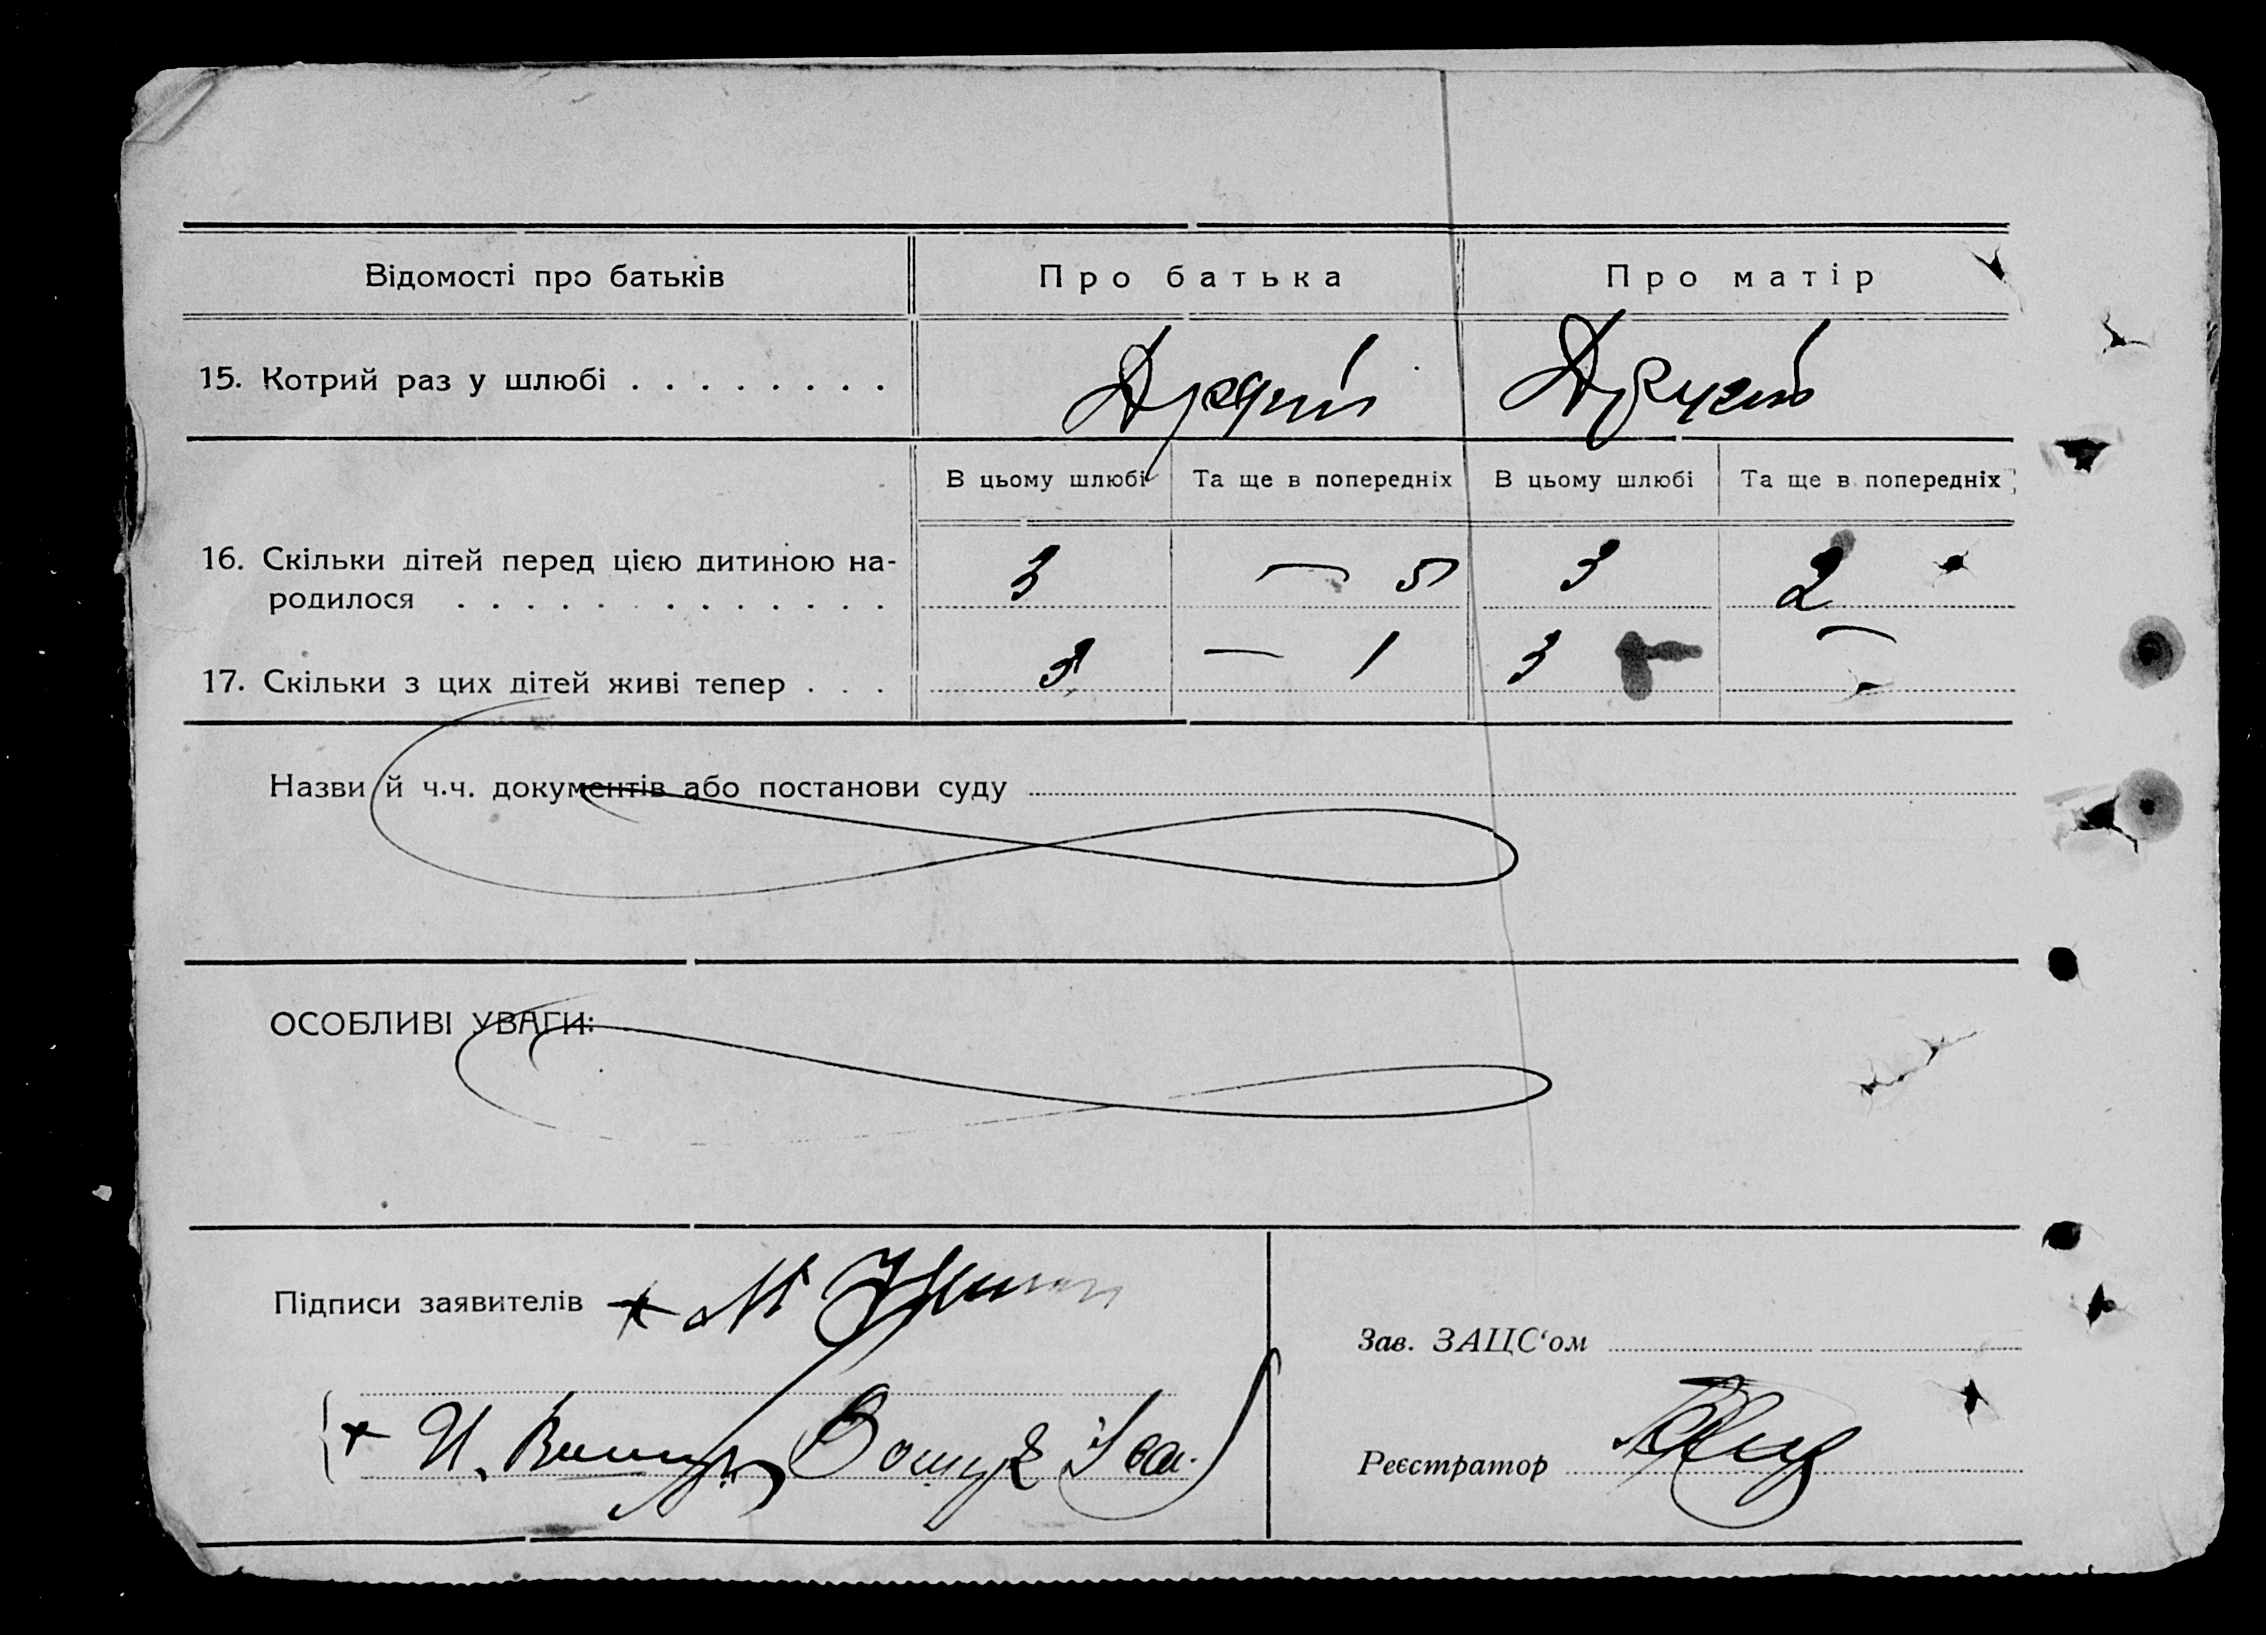 Відомості про батьків Про батька Про матір
15. Котрий раз у шлюбі . . . . . . . . Другий Другий
В цьому шлюбі Та ще в попередніх В цьому шлюбі Та ще в попередніх
16. Скільки дітей перед цією дитиною на-
родилося . . . . . . . . . . . . . 3 — 5 3 2
17. Скільки з цих дітей живі тепер . . . 3 — 1 3 —
Назви й ч.ч. документів або постанови суду
ОСОБЛИВІ УВАГИ:
Підписи заявителів + М
+ И. Вощук Іва.
Зав. ЗАЦС‘ом
Реєстратор